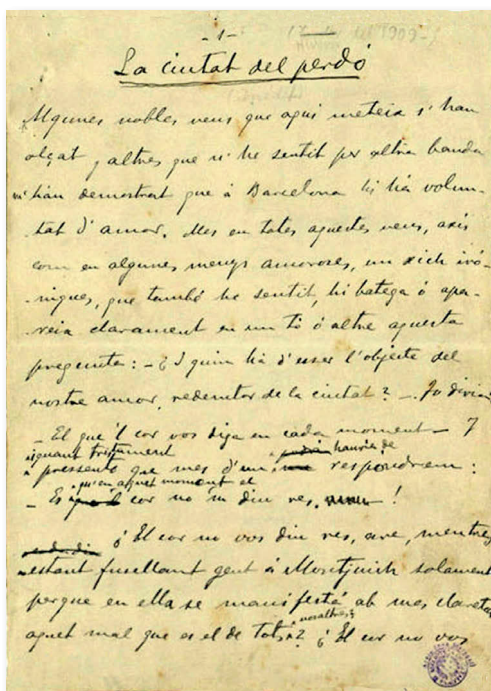 -1-
La ciutat del perdó
Algunes nobles veus que aquí meteix s'han
alçat y altres que n'he sentit per altra banda
m'han demostrat que á Barcelona hi há volun-
tat d'amor. Mes en totes aquestes veus, axís
com en algunes menys amoroses, un xich iró-
niques, que també he sentit, hi batega ó apa-
reix clarament en un tó ó altre aquesta
pregunta: -¿I quin há d'esser l'objecte del
nostre amor, redemtor de la ciutat? - Jo diria:
- El que'l cor vos diga en cada moment - I
signant tristament haurien de
pressento que mes d'un respondrem:
qu'en aquet moment el
- Es cor no'm diu res, !
¿El cor no vos diu res, are, mentres
estant fusellant gent á Montjuich solament
perque en ella se manifestá ab mes claretat
nosaltres
aquet mal que es el de tots? ¿El cor no vos